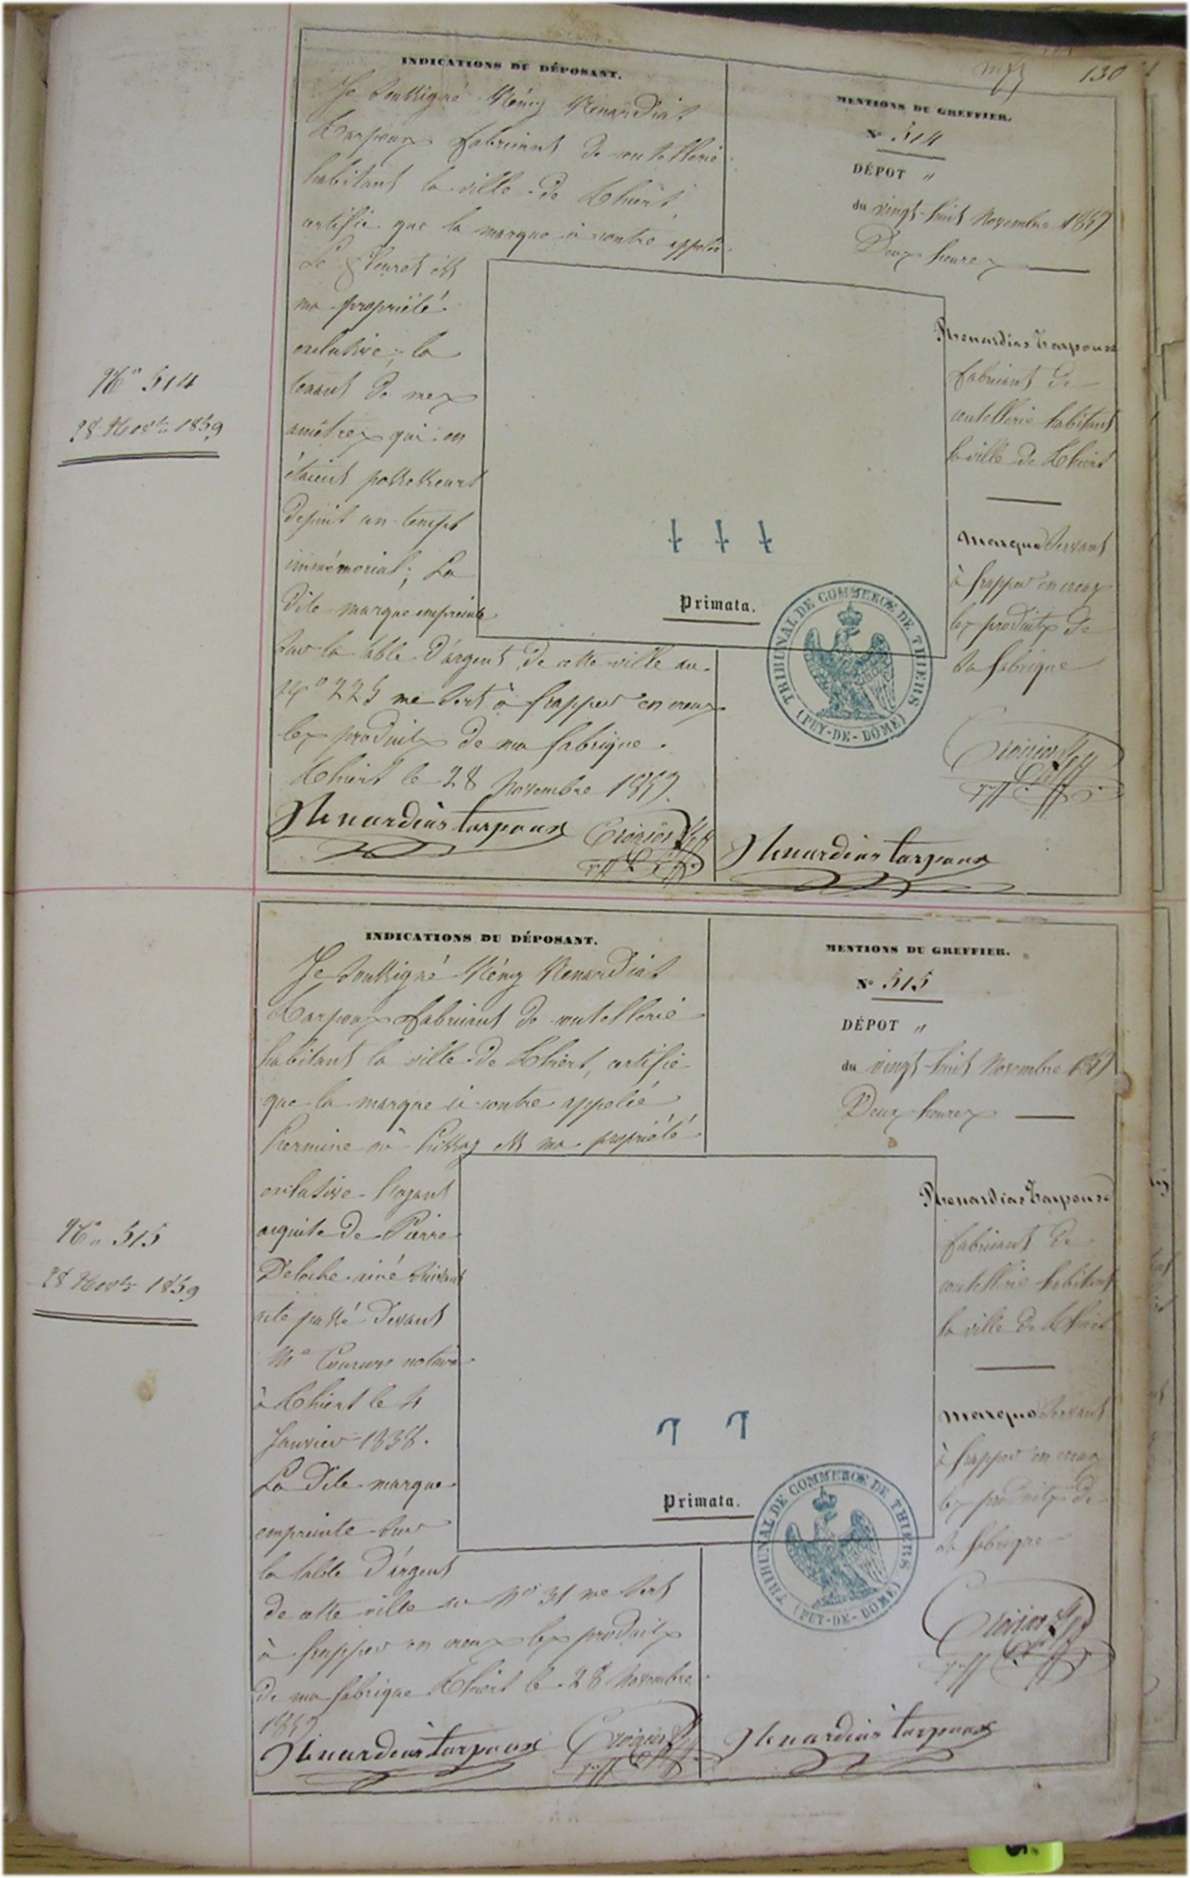 130
INDICATIONS DU DÉPOSANT.
Je soussigné Rémy Renardias
Tarpoux fabricant de coutellerie
habitant la ville de Thiers,
certifie que la marque ci contre appelée
Le fleuret est
ma propriété
exclusive; la
tenant de mes
ancêtres qui en
étaient possesseurs
depuis un temps
immémorial; La
dite marque empreinte
sur la table d'argent de cette ville au
No 225 me sert à frapper en creux
les produits de ma fabrique.
Thiers le 28 Novembre 1859.
Renardias tarpoux
MENTIONS DU GREFFIER.
No 514
DÉPOT "
du vingt-huit Novembre 1859
Deux heures
Renardias Tarpoux
fabricant de
coutellerie habitant
la ville de Thiers
Marque servant
à frapper en creux
les produits de
sa fabrique
Renardias tarpoux
No 514
28 Novbre 1859
Primata.
TRIBUNAL DE COMMERCE DE THIERS
(PUY-DE-DÔME)
INDICATIONS DU DÉPOSANT.
Je soussigné Rémy Renardias
Tarpoux fabricant de coutellerie
habitant la ville de Thiers, certifie
que la marque ci contre appelée
est ma propriété
exclusive l'ayant
acquise de Pierre
Deloche ainé suivant
acte passé devant
Me notaire
à Thiers le 4
Janvier 1838.
La dite marque
empreinte sur
la table d'argent
de cette ville au No 31 me sert
à frapper en creux les produits
de ma fabrique Thiers le 28 Novembre
1859
Renardias tarpoux
MENTIONS DU GREFFIER.
No 515
DÉPOT "
du vingt-huit Novembre 1859
Deux heures
Renardias Tarpoux
fabricant de
coutellerie habitant
la ville de Thiers
Marque servant
à frapper en creux
les produits de
sa fabrique
Renardias tarpoux
No 515
28 Novbre 1859
Primata.
TRIBUNAL DE COMMERCE DE THIERS
(PUY-DE-DÔME)